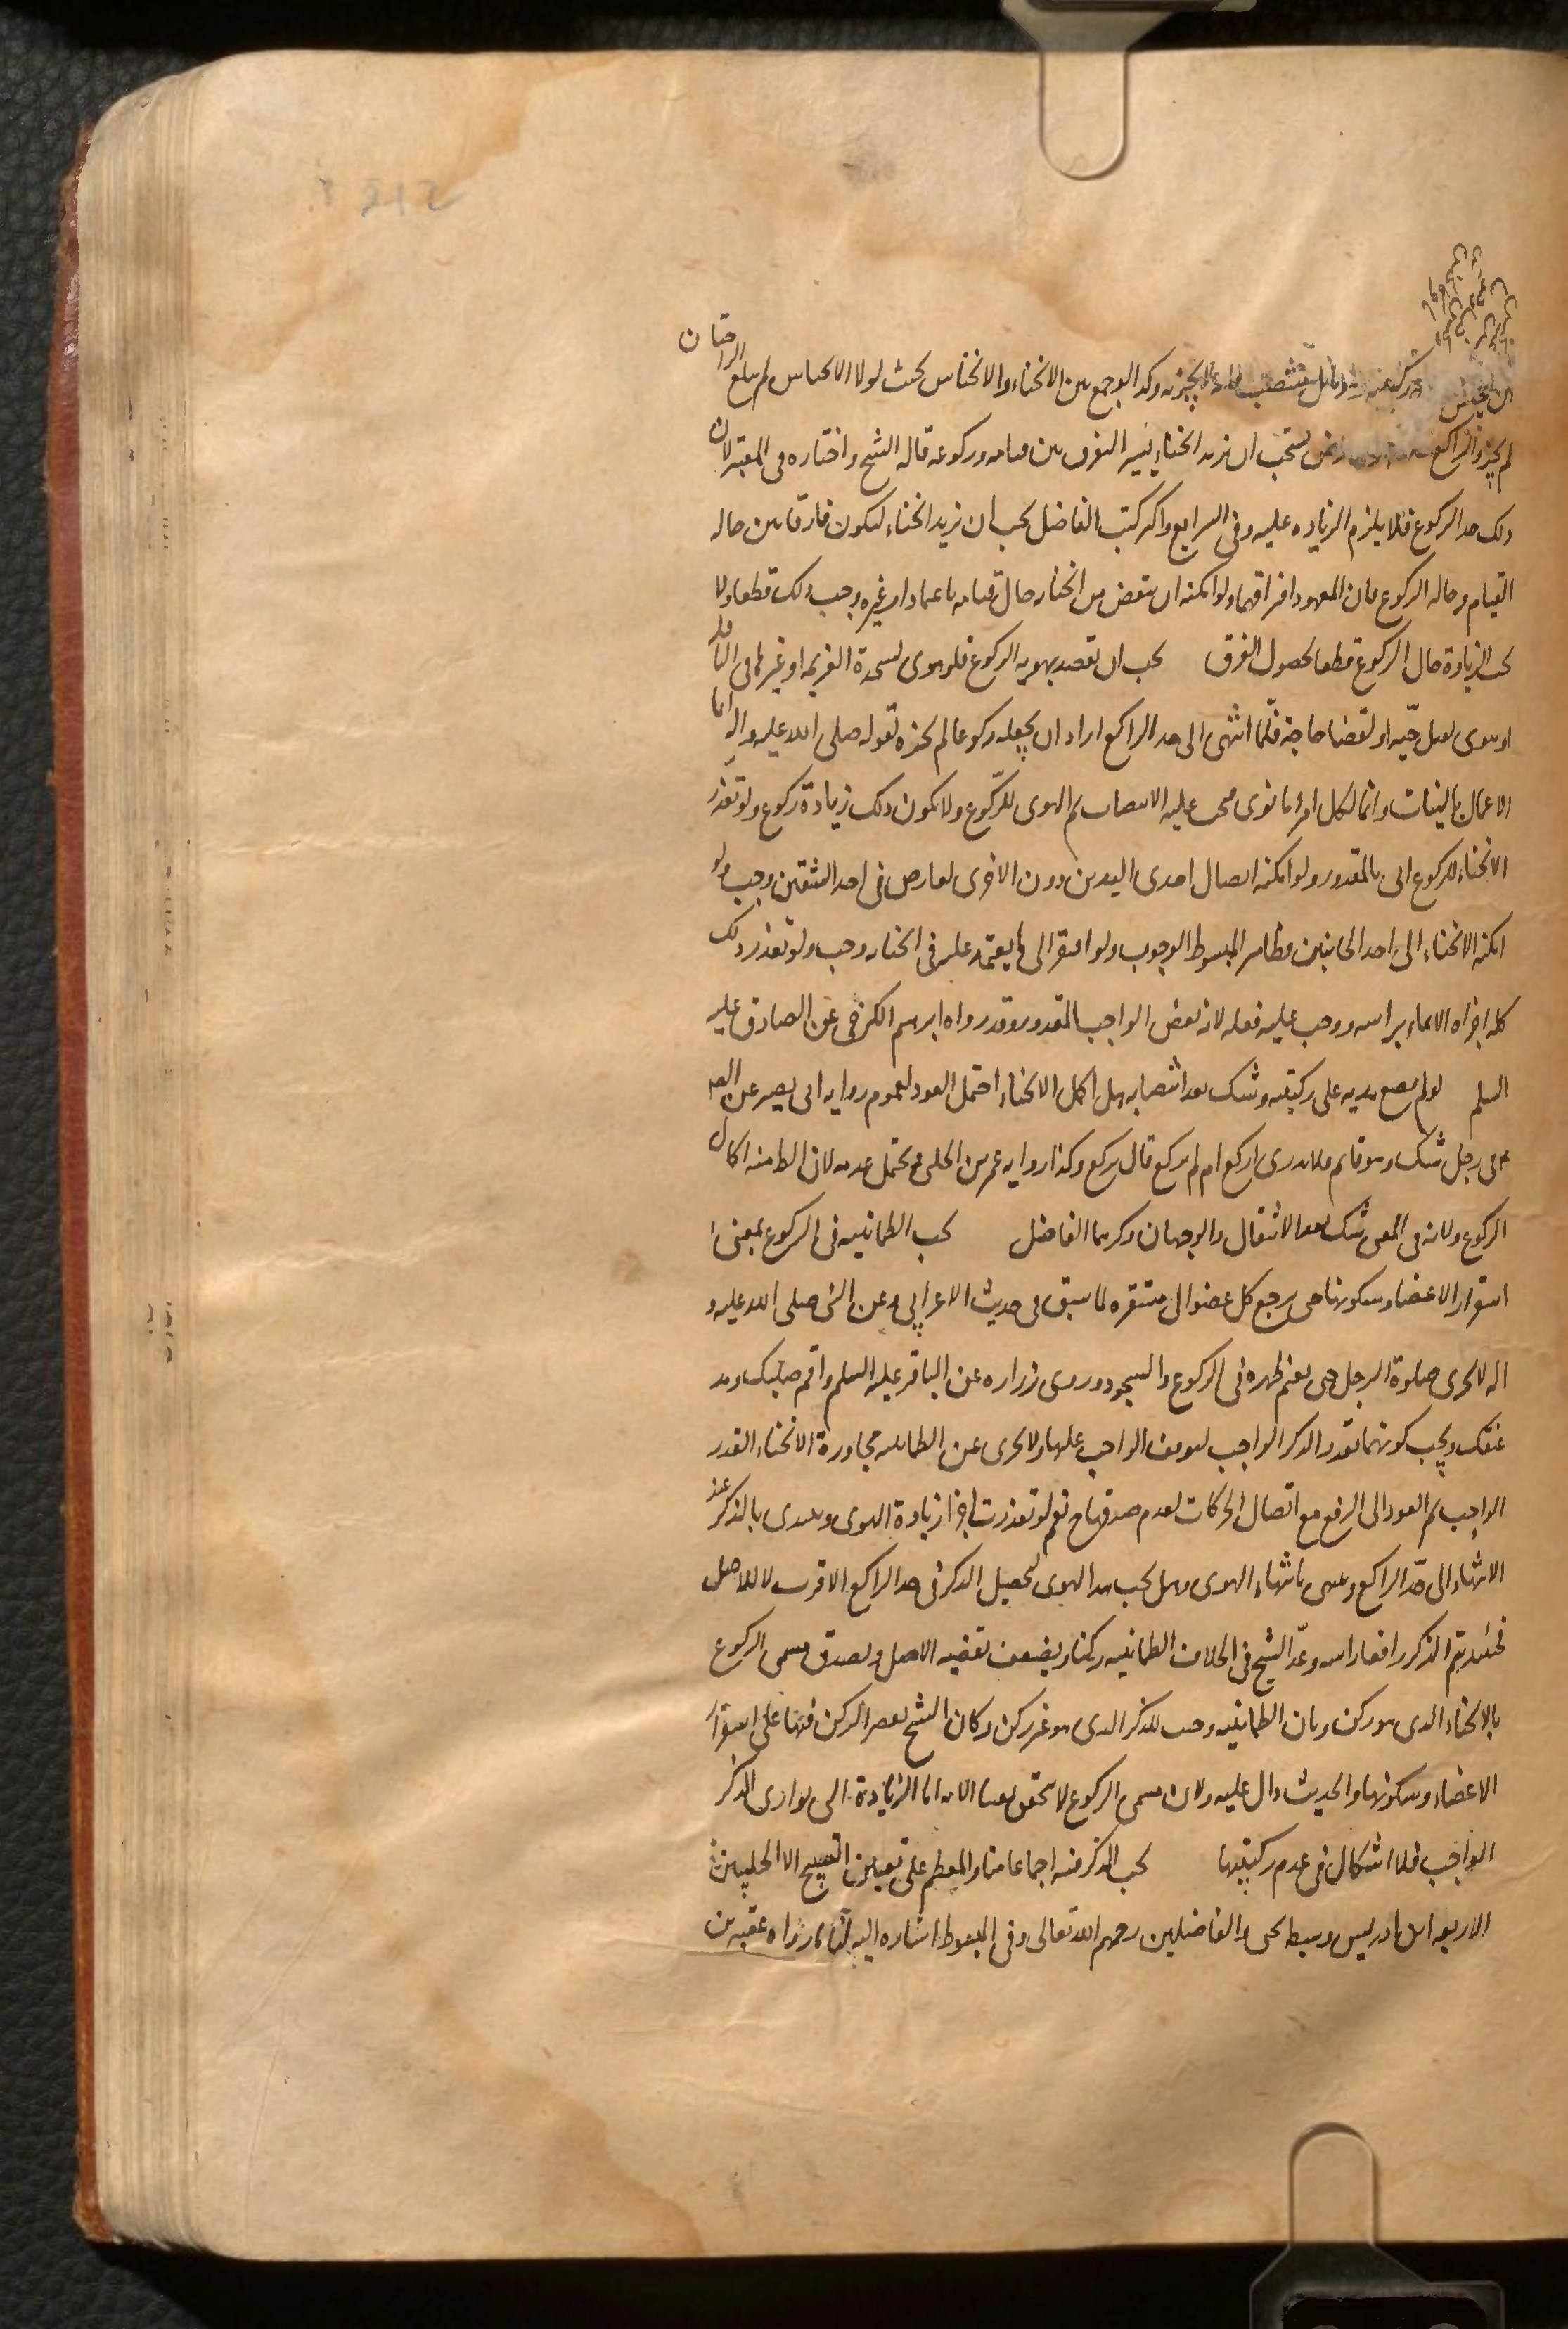 وكذا لو جمع بين الانحناء والانخناس بحيث لولا الانخناس لم يبلغ الراحتان
لم يجز والراكع يستحب ان يزيد انحناء يسير الفرق بين قيامه وركوعه قاله الشيخ واختاره فى المعتبر لان
ذلك حد الركوع فلا يلزم الزياده عليه وفى الشرايع واكثر كتب الفاضل يجب ان يزيد انحناء ليكون فارقا بين حاله
القيام وحاله الركوع فان المعهود افتراقهما ولو امكنه ان ينقص من انحنائه حال قيامه باعتماد او غيره وجب ذلك قطعا ولا
يجب الزيادة حال الركوع قطعا لحصول الفرق يجب ان يقصد بهويه الركوع فلو هوى لسجدة العزيمه او غيرها فى النافله
او هوى لقتل حيّه او لقضا حاجة فلمّا انتهى الى حد الراكع اراد ان يجعله ركوعا لم يجزه لقوله صلى الله عليه واله انما
الاعمال بالنيات وانما لكل امرئ ما نوى فيجب عليه الانتصاب ثم الهوى للركوع ولا يكون ذلك زيادة ركوع ولو تعذر
الانحناء للركوع اتى بالمقدور ولو امكنه ايصال احدى اليدين دون الاخرى لعارض فى احد الشقين وجب ولو
امكنه الانحناء الى احد الجانبين فظاهر المبسوط الوجوب ولو افتقر الى ما يعتمد عليه فى انحنائه وجب ولو تعذر ذلك
كله اجزاه الايماء براسه ووجب عليه فعله لانه بعض الواجب المقدور وقد رواه ابرهيم الكرخى عن الصادق عليه
السلم لو لم يضع يديه على ركبتيه وشك بعد انتصابه هل اكمل الانحناء احتمل العود لعموم روايه ابى بصير عن
فى رجل شك وهو قايم فلا يدرى اركع ام لم يركع قال يركع وكذا روايه عمرن الحلبى ويحتمل عدمه لان الظ منه اكمال
الركوع ولانه فى المعنى شك بعد الانتقال والوجهان ذكرهما الفاضل يجب الطمانينه فى الركوع بمعنى
استقرار الاعضاء وسكونها حتى يرجع كل عضو الى مستقره لما سبق فى حديث الاعرابى وعن النبى صلى الله عليه و
اله لا تجزى صلوة الرجل حتى يقيم ظهره فى الركوع والسجود وروى زراره عن الباقر عليه السلم واقم صلبك ومد
عنقك ويجب كونهما بقدر الذكر الواجب لتوقف الواجب عليها ولا يجزى عن الطمانينه مجاوزة الانحناء القدر
الواجب ثم العود الى الرفع مع اتصال الحركات لعدم صدقها ح نعم لو تعذرت اجزا زيادة الهوى ويبتدى بالذكر عند
الانتهاء الى حدّ الراكع وينتهى بانتهاء الهوى وهل يجب هذا الهوى لتحصيل الذكر فى حد الراكع الاقرب لا للاصل
فحينئذ يتم الذكر رافعا راسه وعدّ الشيخ فى الخلاف الطمانينه ركنا ويضعف بقضيه الاصل وبصدق مسمى الركوع
بالانحناء الذى هو ركن وبان الطمانينه وجبت للذكر الذى هو غير ركن وكان الشيخ يقصر الركن منها على استقرار
الاعضاء وسكونها والحديث دال عليه ولان مسمى الركوع لا يتحقق يقينا الا به اما الزيادة التى توازى الذكر
الواجب فلا اشكال فى عدم ركنيتها يجب الذكر فيه اجماعا منا والمعظم على تعيين التسبيح الا الحليين
الاربعه ابن ادريس وسبطه يحيى والفاضلين رحمهم الله تعالى وفى المبسوط اشاره اليه لنا ما رواه عقبه بن